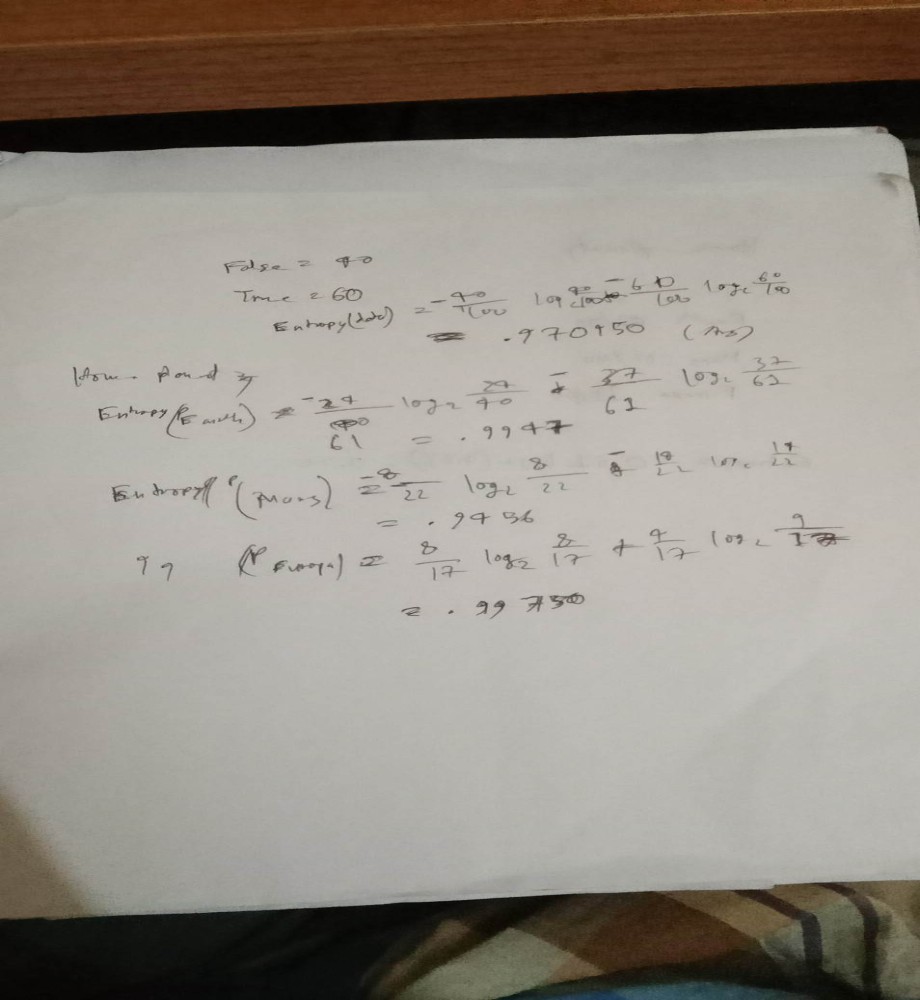 False = 40
True = 60
Entropy(data) = -40/100 log 40/100 - 60/100 log2 60/100
= .970950 (Ans)
Home
Entropy(Earth) = -24/61 log2 24/40 - 37/61 log2 37/61
= .9947
Entropy (Mars) = -8/22 log2 8/22 - 14/22 log2 14/22
= .9456
(Europa) = 8/17 log2 8/17 + 9/17 log2 9/17
= .99750